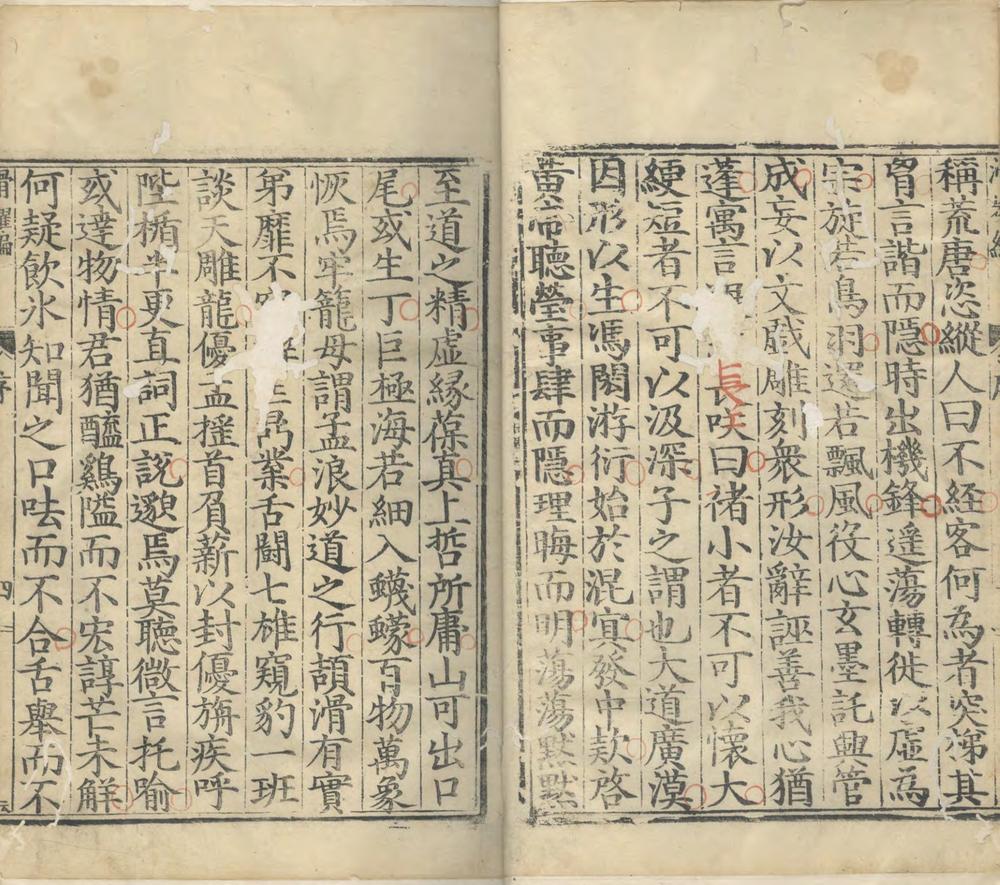 稱荒唐恣縱人曰不經客何為者突梯其
胷言諧而隱時出機鋒遥蕩轉徙以虛為
宗旋若鳥羽還若飄風役心玄墨託興管
成妄以文戲雕刻衆形汝辭誣善我心猶
蓬寓言長笑曰褚小者不可以懷大
綆短者不可以汲深子之謂也大道廣漠
因形以生馮閎游衍始於混寘發中款啓
黃帝聽瑩事肆而隱理晦而明蕩蕩默默
至道之精虛緣葆真上哲所庸山可出口
尾或生丁巨極海若細入蠛蠓百物萬象
恢焉牢籠毋謂孟浪妙道之行頡滑有實
弟靡不咼業舌鬭七雄窺豹一班
談天雕龍優孟搖首負薪以封優旃疾呼
陛楯半更直詞正說邈焉莫聽微言托喻
或達物情君猶醯鷄隘而不宏諄芒未解
何疑飲氷知聞之口呿而不合舌舉而不
滑耀編
序
四